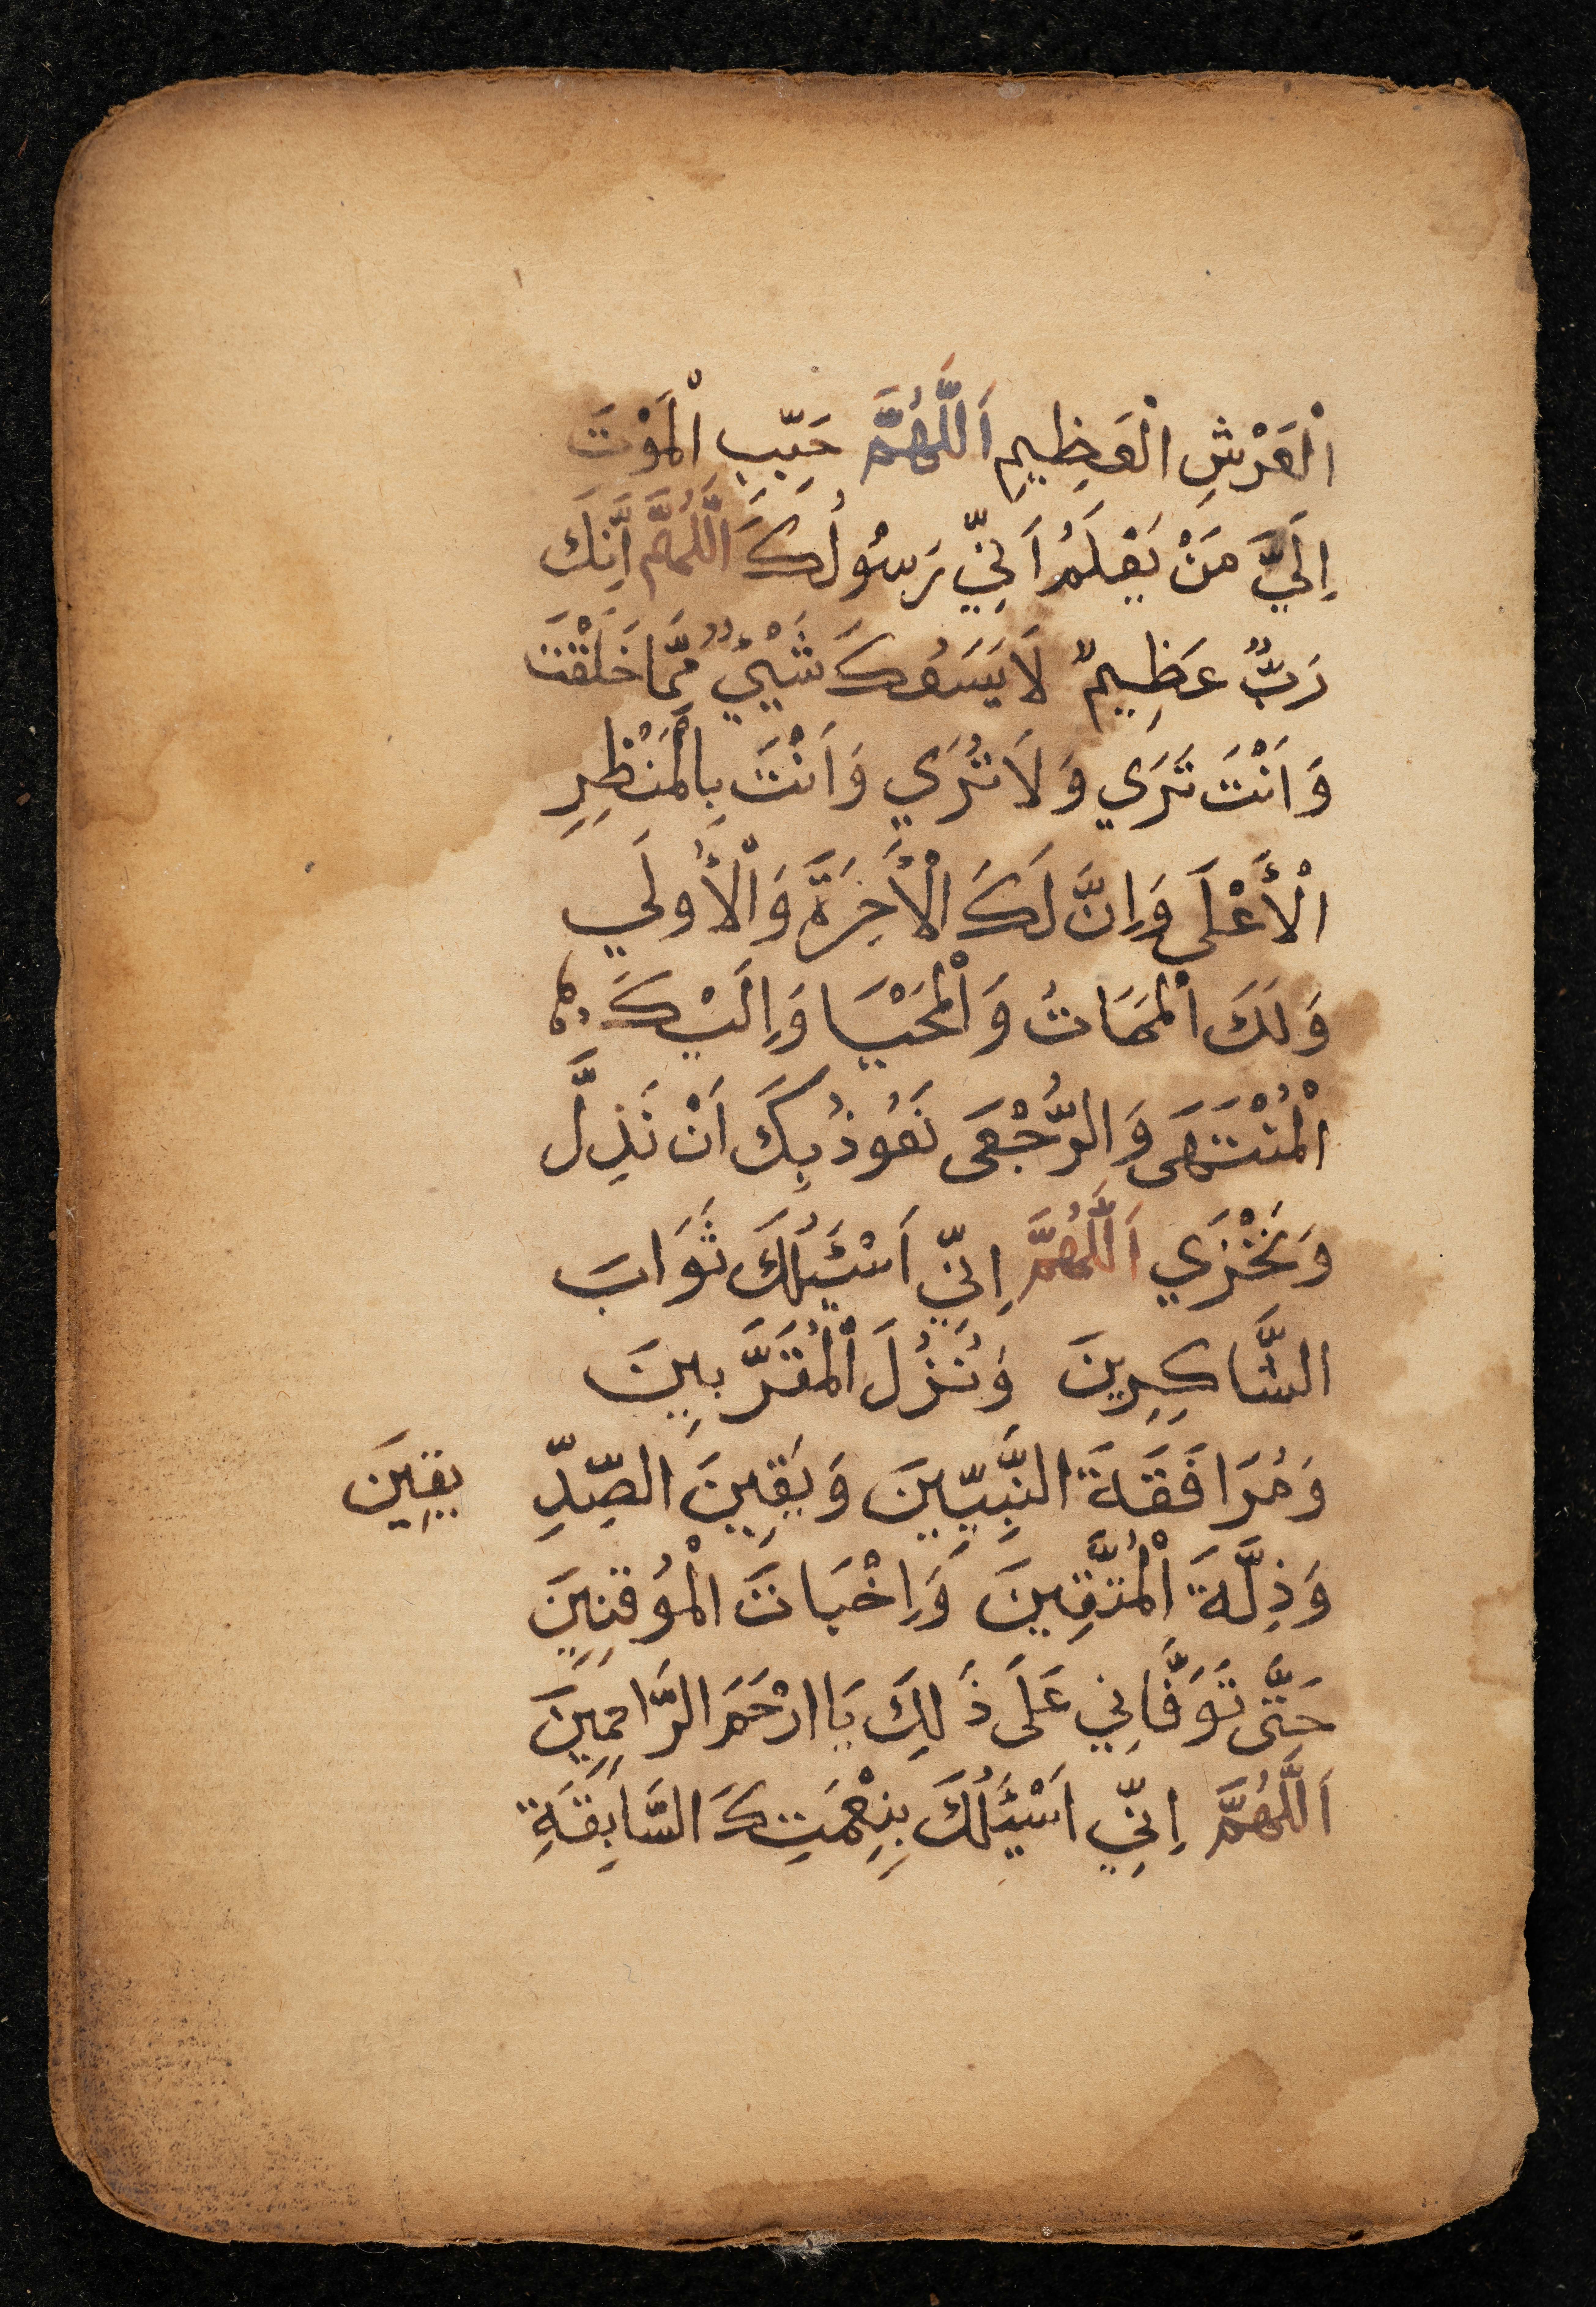 الْعَرْشِ الْعَظِيمِ اَللَّهُمَّ حَبِّبِ الْمَوْتَ
اِلَيَّ مَنْ يَعْلَمُ اَنِّي رَسُولُكَ اَللَّهُمَّ اِنَّكَ
رَبٌّ عَظِيمٌ لَا يَسَعُكَ شَيْئٌ مِمَّا خَلَقْتَ
وَاَنْتَ تَرَي وَلَا تُرَي وَاَنْتَ بِالْمَنْظِرِ
الْأَعْلَى وَاِنَّ لَكَ الْأَخِرَةَ وَالْأُولَي
وَلَكَ الْمَمَاتُ وَالْمَحْيَا وَاِلَيْكَ
الْمُنْتَهَى وَالرُّجْعَى نَعُوذُ بِكَ اَنْ نَذِلَّ
وَنَخْزَي اَللَّهُمَّ اِنِّي اَسْئَلُكَ ثَوَابَ
الشَّاكِرِينَ وَنُزُلَ الْمُقَرَّبِينَ
وَمُرَافَقَةَ النَّبِيِّينَ وَيَقِينَ الصِّدِّ يقِينَ
وَذِلَّةَ الْمُتَّقِينَ وَاِخْبَاتَ الْمُوقِنِينَ
حَتَّى تَوَفَّانِي عَلَى ذَلِكَ يَا ارْحَمَ الرَّاحِمِينَ
اَللَّهُمَّ اِنِّي اَسْئَلُكَ بِنِعْمَتِكَ السَّابِقَةِ